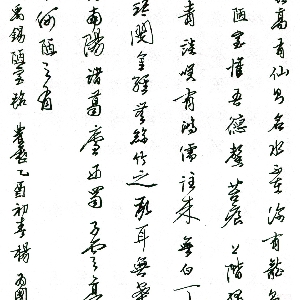 高有仙則名水不在深有龍
陋室惟吾德馨苔痕上階
青談笑有鴻儒往來無白丁
琴閱金經無絲竹之亂耳無案
南陽諸葛廬西蜀子雲亭
何陋之有
禹錫陋室銘 乙酉初春楊